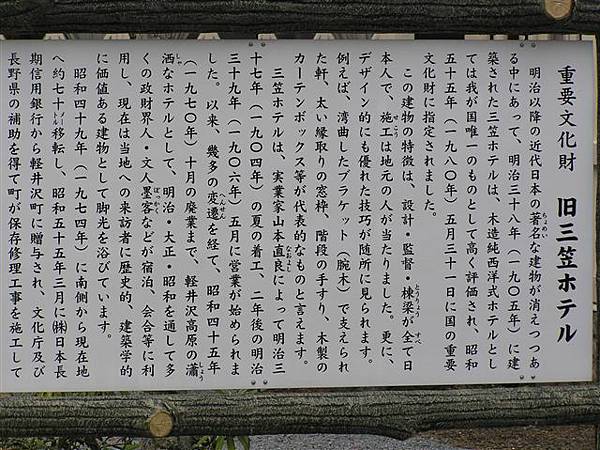 重要文化財　旧三笠ホテル
明治以降の近代日本の著名な建物が消えつつあ
る中にあって、明治三十八年（一九〇五年）に建
築された三笠ホテルは、木造純西洋式ホテルとし
ては我が国唯一のものとして高く評価され、昭和
五十五年（一九八〇年）五月三十一日に国の重要
文化財に指定されました。
この建物の特徴は、設計・監督・棟梁が全て日
本人で、施工は地元の人が当たりました。更に、
デザイン的にも優れた技巧が随所に見られます。
例えば、湾曲したブラケット（腕木）で支えられ
た軒、太い縁取りの窓枠、階段の手すり、木製の
カーテンボックス等が代表的なものと言えます。
三笠ホテルは、実業家山本直良によって明治三
十七年（一九〇四年）の夏の着工、二年後の明治
三十九年（一九〇六年）五月に営業が始められま
した。以来、幾多の変遷を経て、昭和四十五年
（一九七〇年）十月の廃業まで、軽井沢高原の瀟
洒なホテルとして、明治・大正・昭和を通して多
くの政財界人・文人墨客などが宿泊、会合等に利
用し、現在は当地への来訪者に歴史的、建築学的
に価値ある建物として脚光を浴びています。
昭和四十九年（一九七四年）に南側から現在地
へ約七十㍍移転し、昭和五十五年三月に㈱日本長
期信用銀行から軽井沢町に贈与され、文化庁及び
長野県の補助を得て町が保存修理工事を施工して